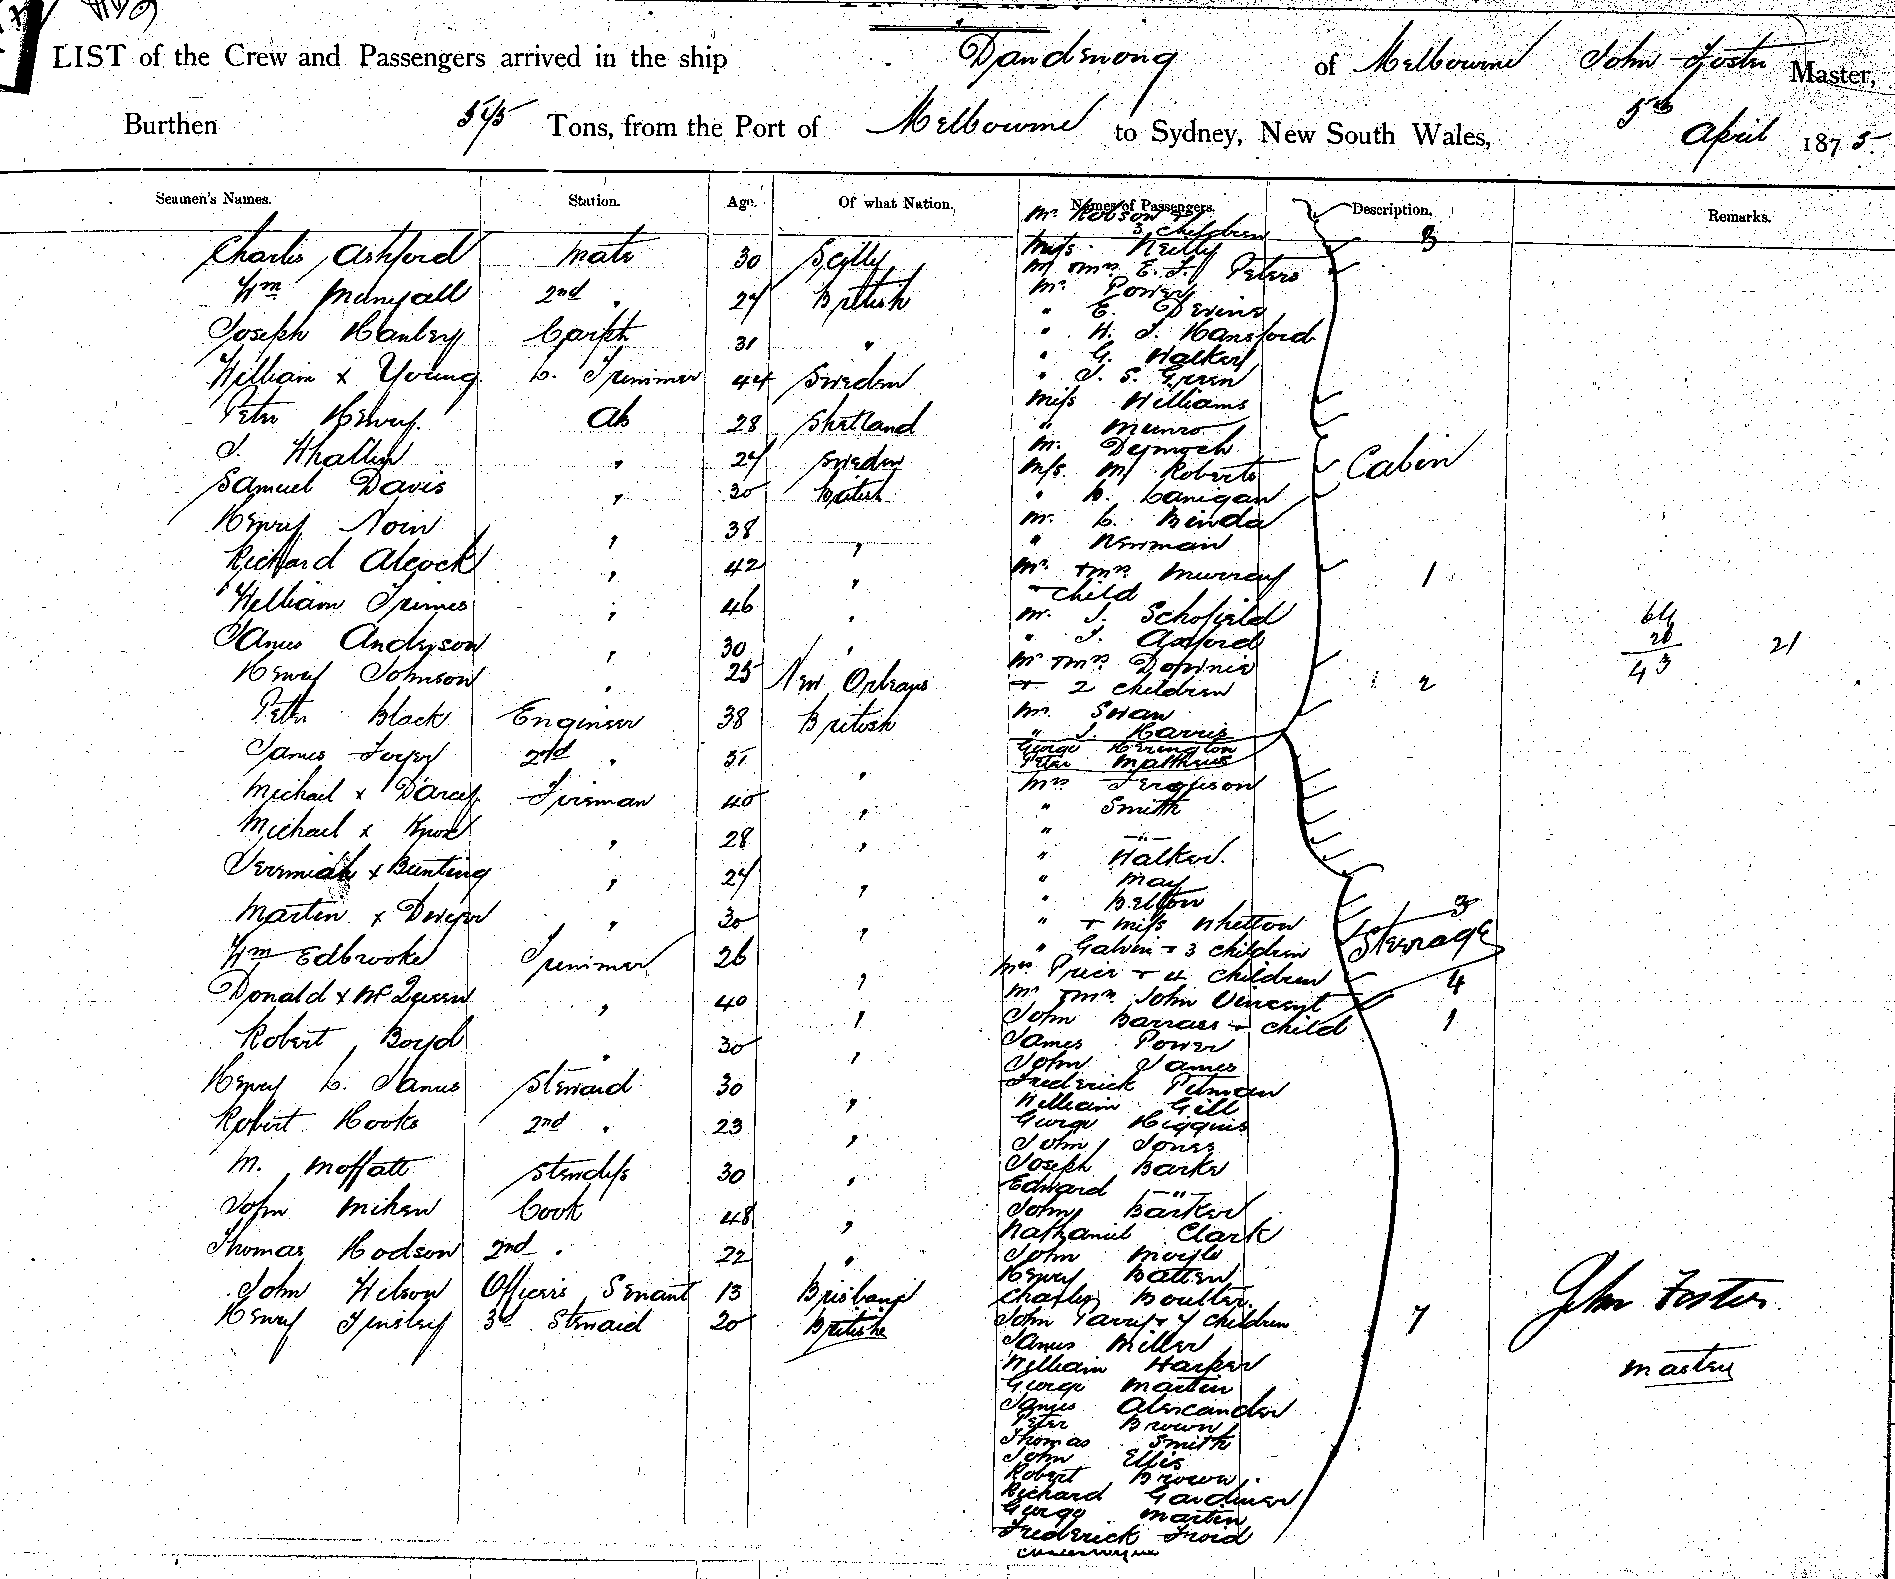 LIST of the Crew and Passengers arrived in the ship Dandenong of Melbourne John Foster Master,
Burthen Tons, from the Port of Melbourne to Sydney, New South Wales, 5th April 1875
Seamen's Names. Station. Age. Of what Nation. Names of Passengers. Description. Remarks.
Charles Ashford Mate 30 Scilly
Wm 2nd " 27 British
Joseph Hanbery Carptr 31 "
William x Young L. Trimmer 44 Sweden
Peter Henry Ab 28 Shetland
J. Whallin " 27 Sweden
Samuel Davis " 30 British
Henry Noin " 38 "
Richard Alcock " 42 "
William Grimes " 46 "
James Anderson " 30 "
Henry Johnson " 25 New Orleans
Peter Black Engineer 38 British
James 2nd " 31 "
Michael x Darcy Fireman 40 "
Michael x Knox " 28 "
Jeremiah x Bunting " 27 "
Martin x Dwyer " 30 "
Wm Edbrooke Trimmer 26 "
Donald x McQueen " 40 "
Robert Boyd " 30 "
Henry L. James Steward 30 "
Robert Hooke 2nd " 23 "
M. Moffatt Stewdss 30 "
John Miken Cook 48 "
Thomas Hodson 2nd " 22 "
John Wilson Officers Servant 13 Brisbane
Henry Tinsley 3rd Steward 20 British
Mr Robson &
3 children 3
Miss Reilly
Mr & Mrs E. J. Peters
Mr Power
" E. Devine
" H. J. Hansford
" G. Walker
" J. S. Green
Miss Williams
" Munro
Mr. Dermoch
Miss M Roberts
" L. Lanigan
Mr. L. Binda
" Newman
Mr & Mrs Murray
& child 1
Mr. J. Schofield
" J. Axford
Mr & Mrs Downie
& 2 children 2
Mr. Swan
" J. Harris
Cabin
George Herrington
Peter Matthews
Mrs Ferguson
" Smith
" — " —
" Walker.
" May
" Belton
" & Miss Whetton
" Galvin & 3 children 3
Steerage
Mrs Price & 4 children 4
Mr & Mrs John Vincent
John Barrass & child 1
James Power
John James
Frederick Pitman
William Gill
George Higgins
John Jones
Joseph Barke
Edward — " —
John Barker
Nathaniel Clark
John Moyle
Henry Batten
Charles Boulter
John Parry & 7 children 7
James Miller
William Harper
George Martin
James Alexander
Peter Brown
Thomas Smith
John Ellis
Robert Brown.
Richard Gardiner
George Martin
Frederick Froid
64
43
21
John Foster
Master